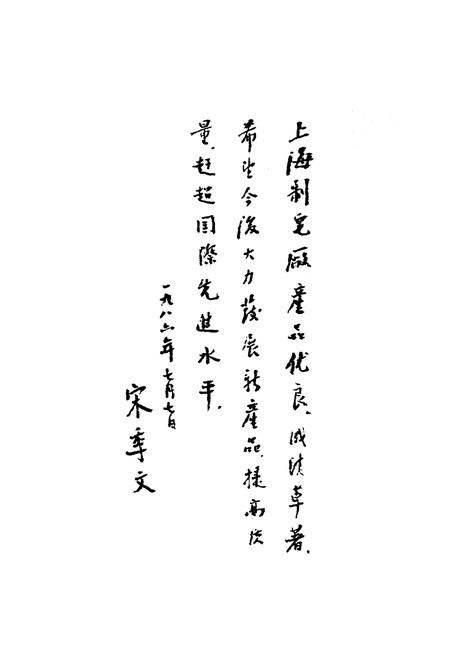 上海制皂厰產品优良、成绩卓著、
希望今後大力發展新產品、提高质
量、赶超国際先進水平．
一九八六年七月七日
宋季文